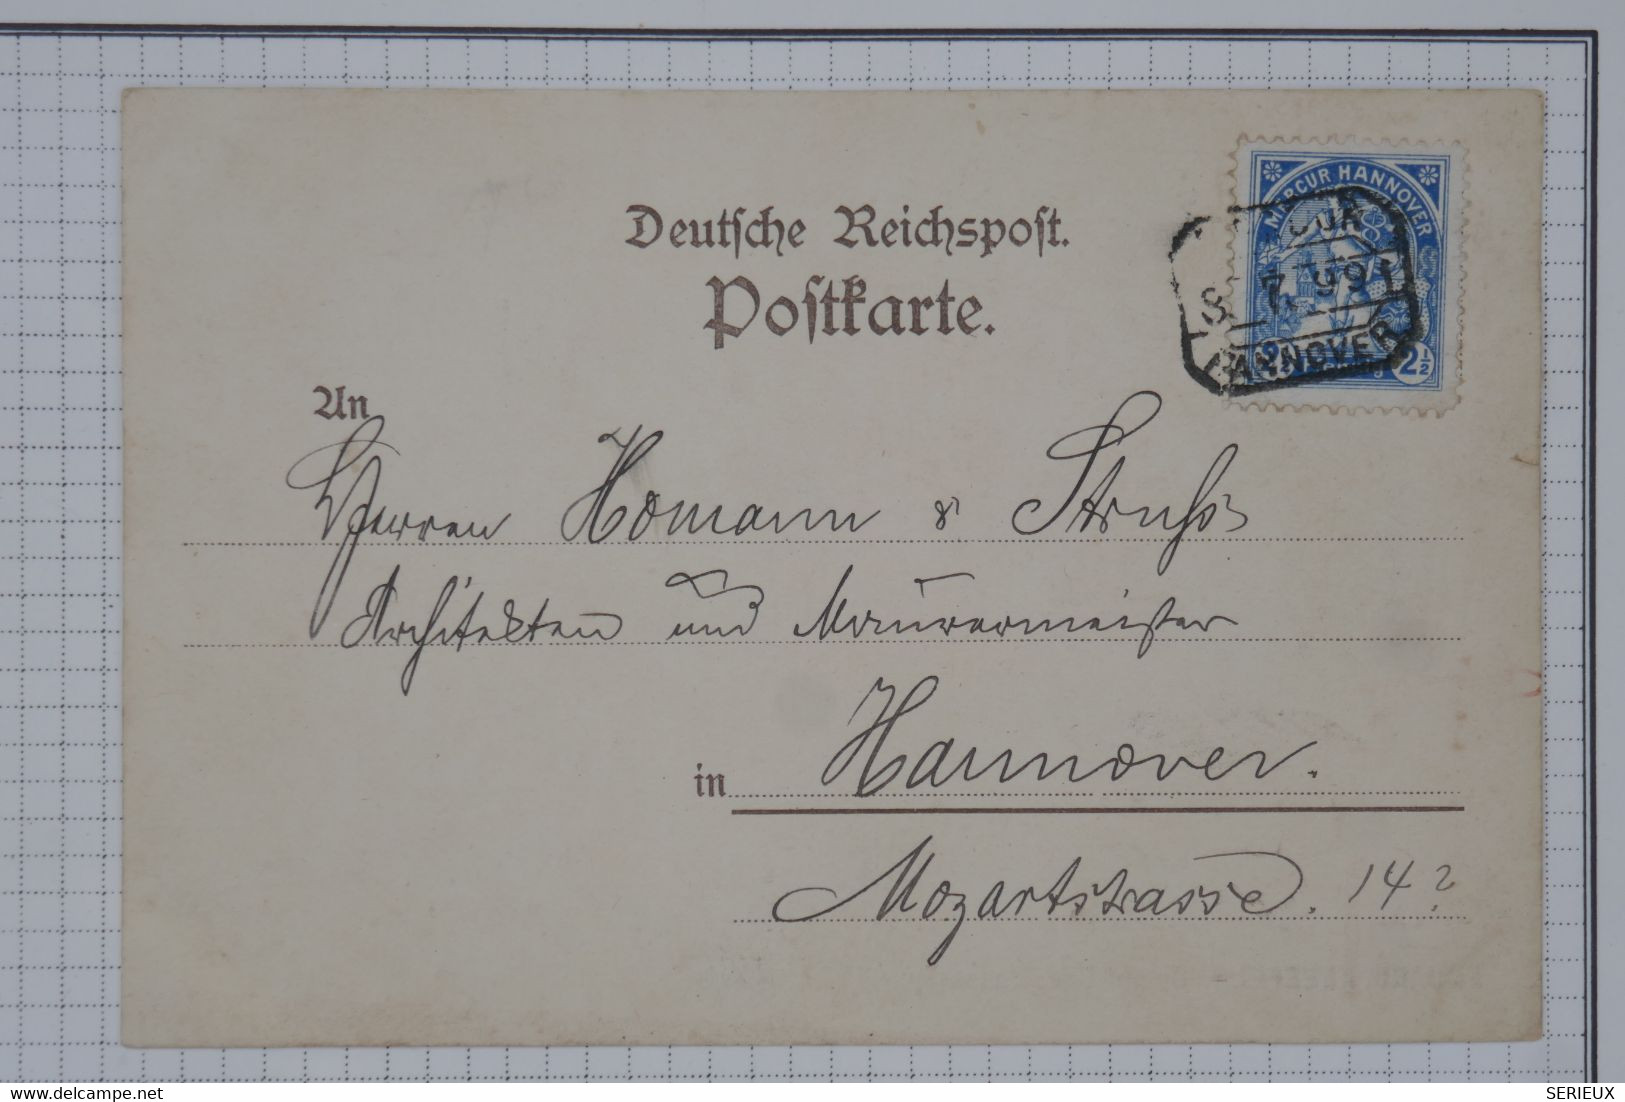 Deutsche Reichspost.
Postkarte.
MERCUR HANNOVER
7 99
HANNOVER
2½
An
Herren Homann & Struss
Architekten und Maurermeister
in Hannover.
Mozartstrasse. 14?
www.delcampe.net
SERIEUX